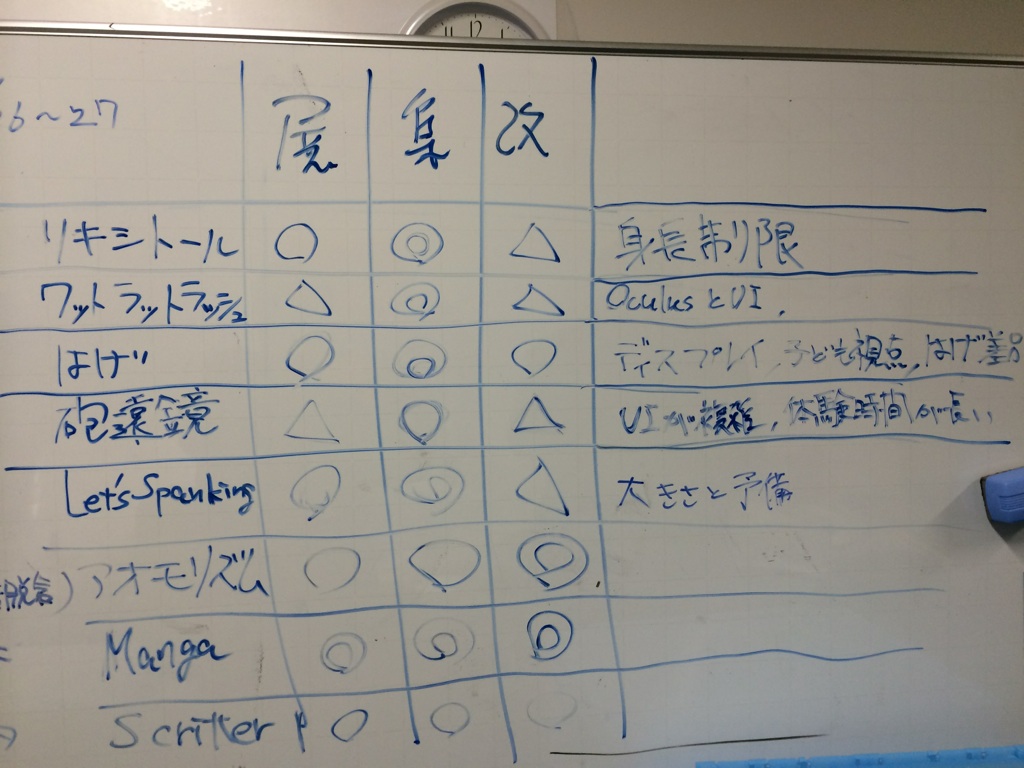 12
6~27 展 集 改
リキシトール ○ ◎ △ 身長制限
フットラットラッシュ △ ◎ △ OculusとUI,
はげ ○ ◎ ○ ディスプレイ,子ども視点,はげ差別
砲遠鏡 △ ○ △ UIが複雑,体験時間が長い
Let'sSpanking ○ ◎ △ 大きさと予備
) アオモリズム ○ ○ ◎
Manga ◎ ◎ ◎
Scritter ○ ○ ○